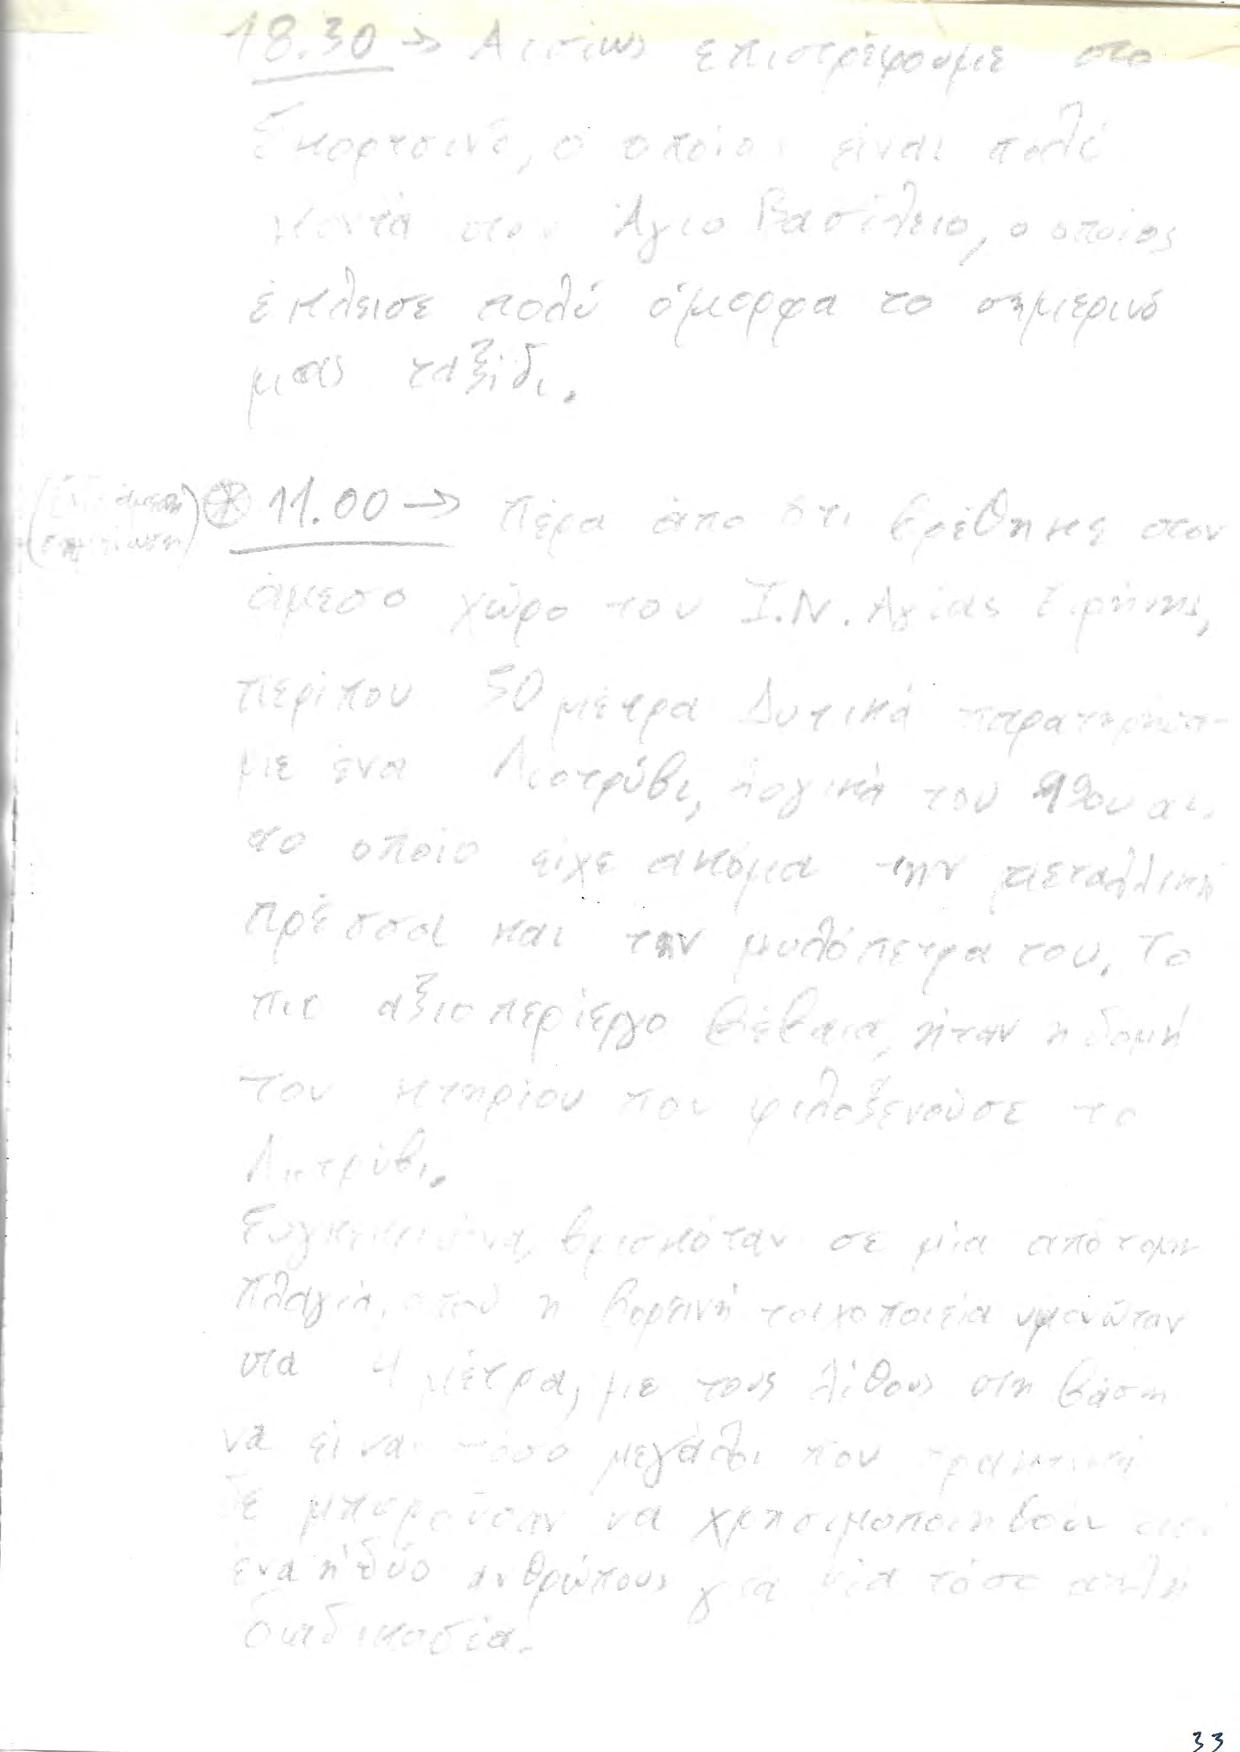 18.30 → Αισίως επιστρέφουμε στο
Σκορτσινό, ο οποίος είναι πολύ
κοντά στον Άγιο Βασίλειο, ο οποίος
έκλεισε πολύ όμορφα το σημερινό
μας ταξίδι.
⊛ 11.00 → Πέρα άπο ότι βρέθηκε στον
άμεσο χώρο του Ι.Ν. Αγίας Ειρήνης,
περίπου 50 μέτρα Δυτικά
με ένα Λιοτρύβι, λογικά του 19ου αι.
το οποίο είχε ακόμα την μεταλλική
πρέσσα και την μυλόπετρα του. Το
πιο αξιοπερίεργο βέβαια, ήταν η δομή
του κτηρίου που φιλοξενούσε το
Λιοτρύβι.
Συγκεκριμένα, βρισκόταν σε μία απότομη
πλαγιά, όπου η βορεινή τοιχοποιεία υψωνῶταν
στα 4 μέτρα, με τους λίθους στη βάση
να είναι τόσο μεγάλοι που πρακτικά
δε μπορούσαν να χρησιμοποιηθούν
ένα ή δύο ανθρώπους για μία τόσο απλή
διαδικασία.
33